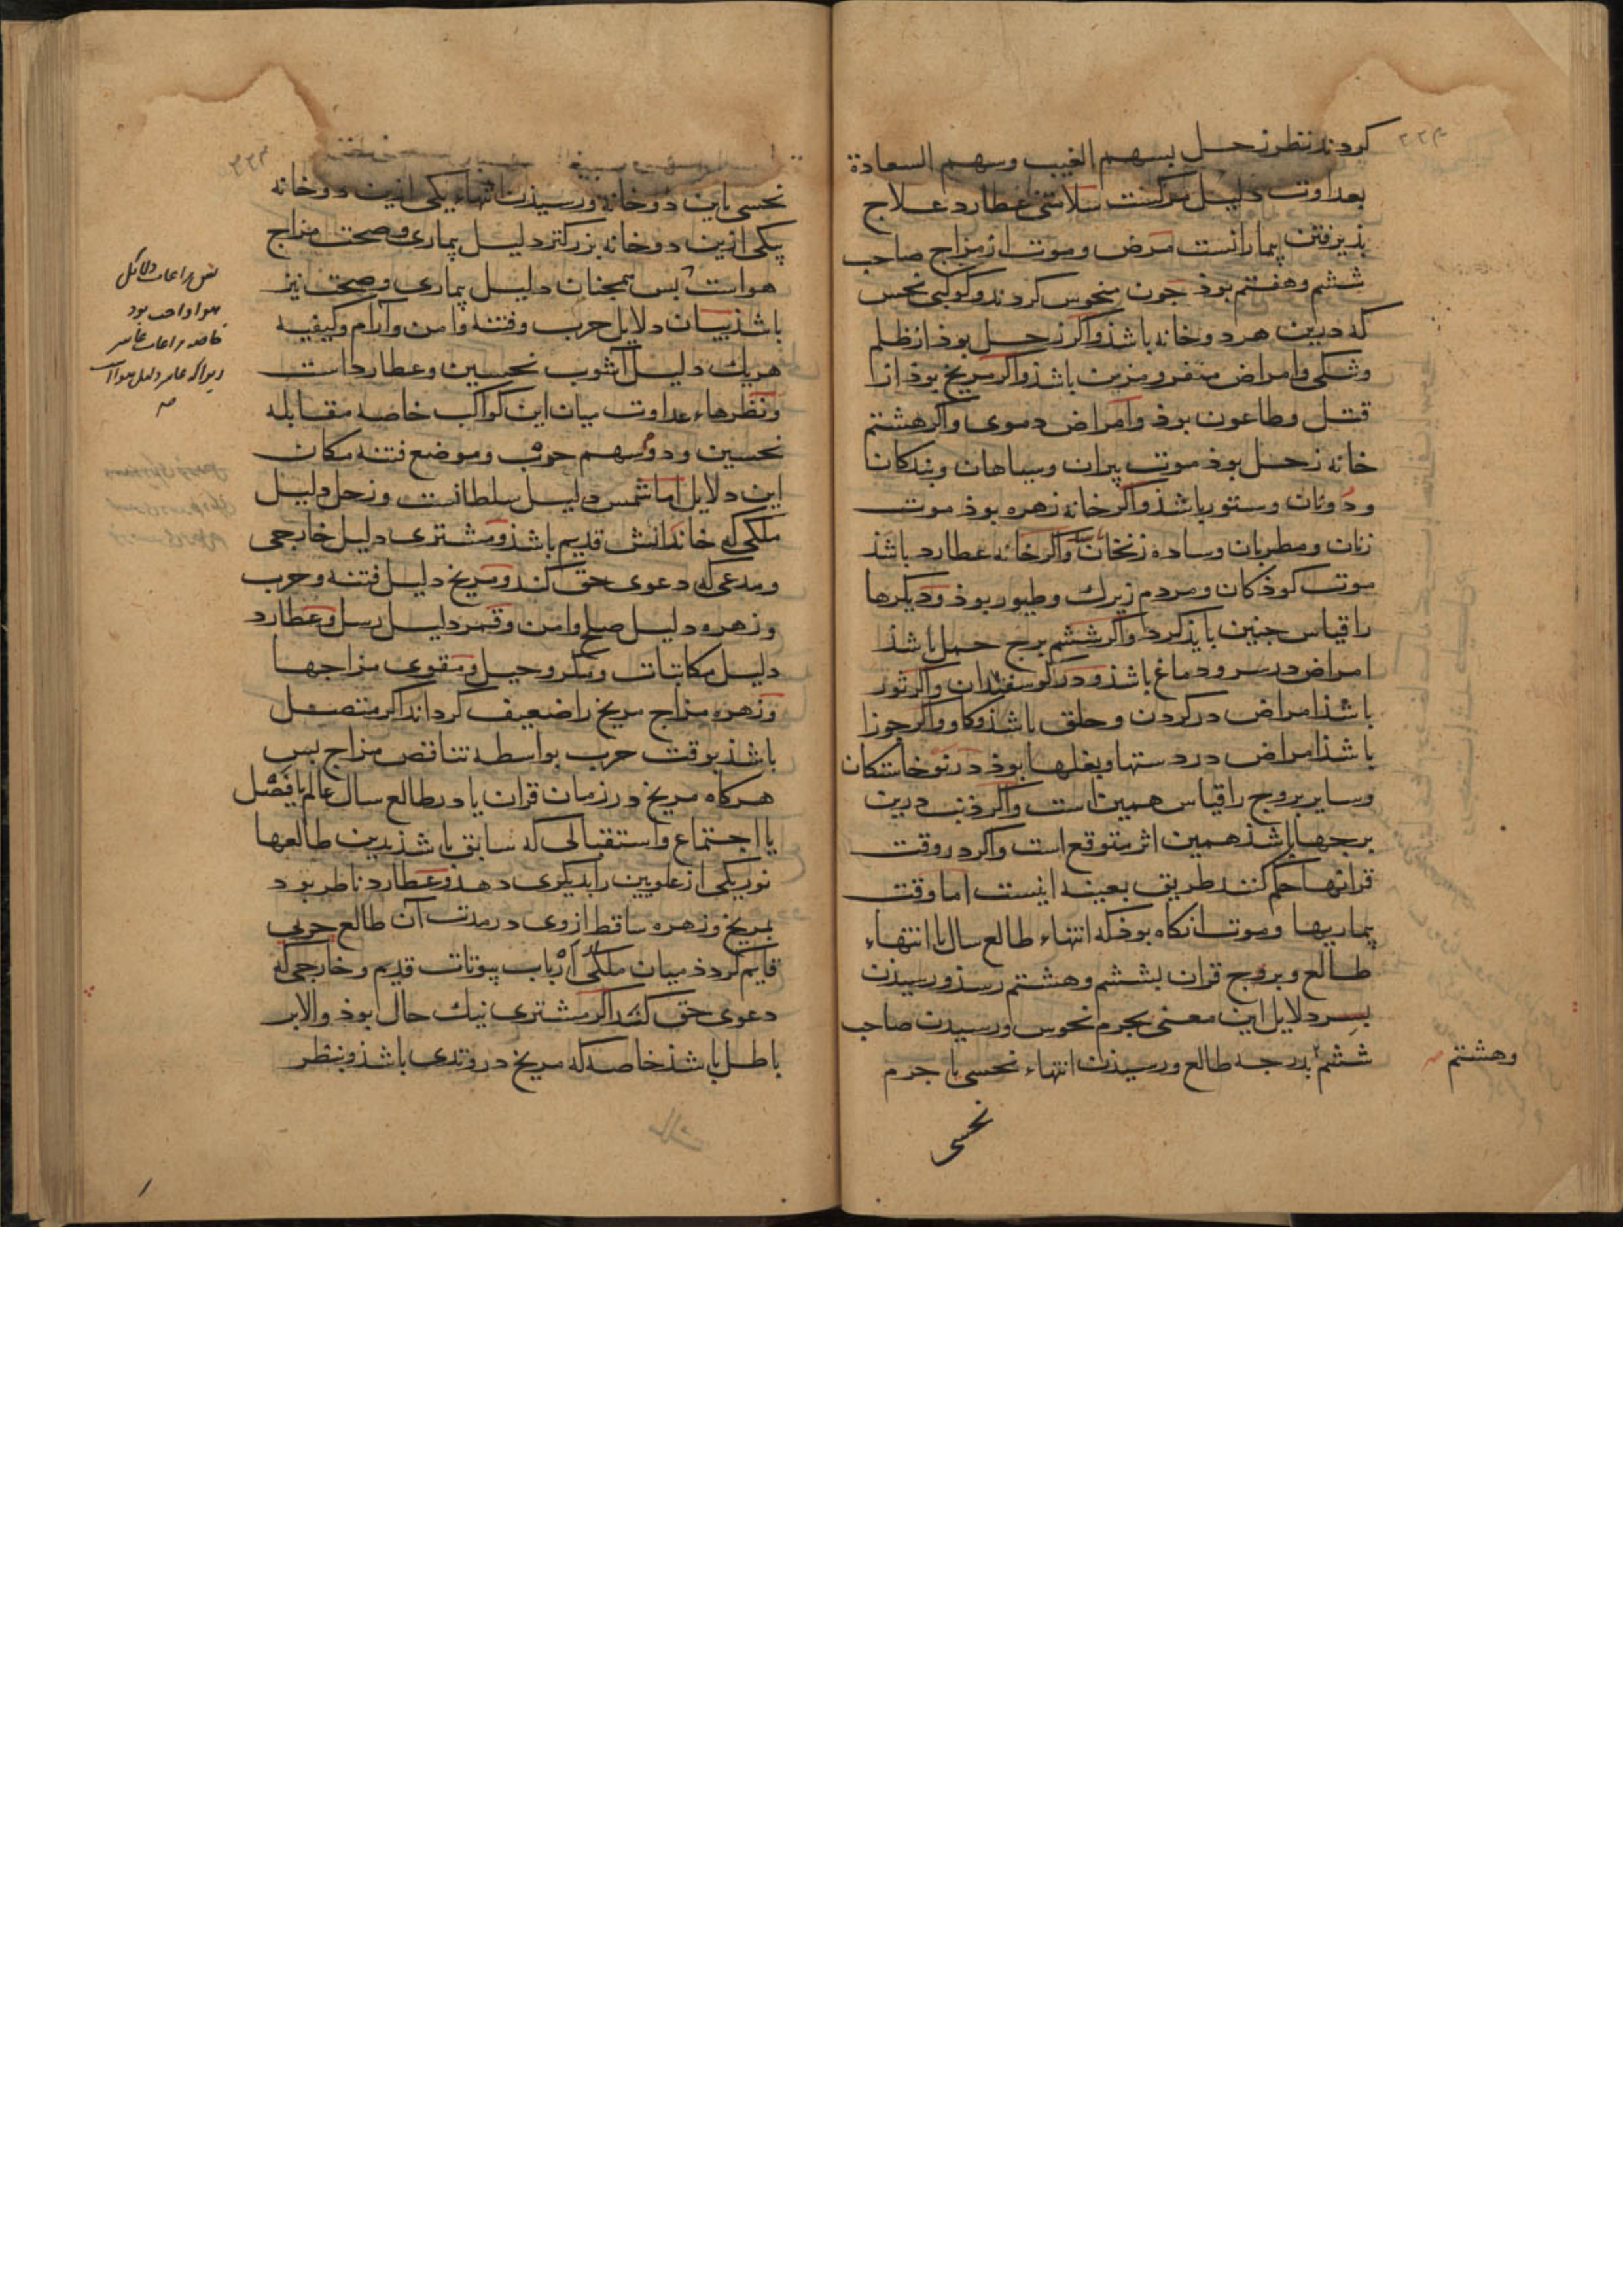 کردند نظر زحل بسهم الغیب وسهم السعادة
بعداوت دلیل مرکست سلامتی عطارد علاج
بذیرفتن بیمارانست مرض وموت از مزاج صاحب
ششم وهفتم بوذ جون منحوس کردند وکوکبی نحس
که درین هر دو خانه باشذ واکر زحل بوذ از ظلم
وشکی وامراض متفرر مزمن باشذ واکر مریخ بوذ از
قتل وطاعون بوذ وامراض دموی واکر هشتم
خانه زحل بوذ موت پیران وسیاهان وبندکان
ودونان وستور باشذ واکر خانه زهره بوذ موت
زنان ومطربان وساده زنخان واکر خانه عطارد باشذ
موت کوذکان ومردم زیرک وطیور بوذ ودیکرها
را قیاس جنین بایذ کرد واکر ششم برج حمل باشذ
امراض در سر ودماغ باشذ ودر کوسفندان واکر ثور
باشذ امراض در کردن وحلق باشذ وکاو واکر جوزا
باشذ امراض در دستها وبغلها بوذ در نوخاستکان
وسایر بروج را قیاس همین است واکر ذنب درین
برجها باشذ همین اثر متوقع است واکر در وقت
قرانها حکم کنند طریق بعینه اینست اما وقت
بیماریها وموت انکاه بوذ که انتهاء طالع سال یا انتهاء
طالع وبروج قران بششم وهشتم رسذ ورسیذن
بسر دلایل این معنی بجرم نحوس ورسیدن صاحب
ششم بدرجه طالع ورسیذن انتهاء نحسی با جرم
وهشتم
نحسی
نحسی باین دو خانه ورسیذن انتهاء یکی ازین دو خانه
بیکی ازین دو خانه بزرکتر دلیل بیماری وصحت مزاج
هواست بس همجنان دلیل بیماری وصحت نیز
باشذ بیان دلایل حرب وفتنه وامن وآرام وکیفیه
هریک دلیل آشوب نحسین وعطارد است
ونظرهاء عداوت میان این کواکب خاصه مقابله
نحسین ودو سهم حرب وموضع فتنه مکان
این دلایل اما شمس دلیل سلطانست وزحل دلیل
ملکی که خاندانش قدیم باشذ ومشتری دلیل خارجی
ومدعی که دعوی حق کند ومریخ دلیل فتنه وحرب
وزهره دلیل صلح وامن وقمر دلیل رسل وعطارد
دلیل مکاتبات ومکر وحیل ومقوی مزاجها
وزهره مزاج مریخ را ضعیف کرداند اکر متصل
باشذ بوقت حرب بواسطه تناقض مزاج بس
هرکاه مریخ در زمان قران یا در طالع سال عالم یا فصل
یا اجتماع واستقبالی که سابق باشذ بدین طالعها
نور یکی از علویین را بدیکری دهذ وعطارد ناظر بود
بمریخ وزهره ساقط از وی در مدت آن طالع حربی
قایم کردذ میان ملکی از ارباب بیوتات قدیم وخارجی که
دعوی حق کند اکر مشتری نیک حال بوذ والا بر
باطل باشذ خاصه که مریخ در وتدی باشذ وبنظر
بس مراعات دلائل
هوا واجب بود
خاصه مراعات عاشر
زیرا که عاشر دلیل هواا